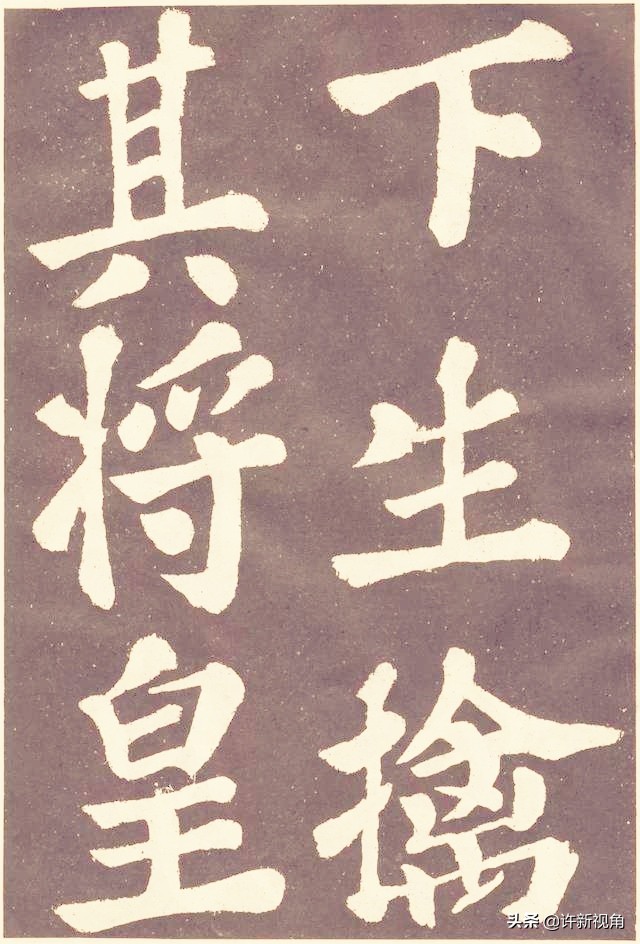 下生擒
其将皇
头条 @许新视角